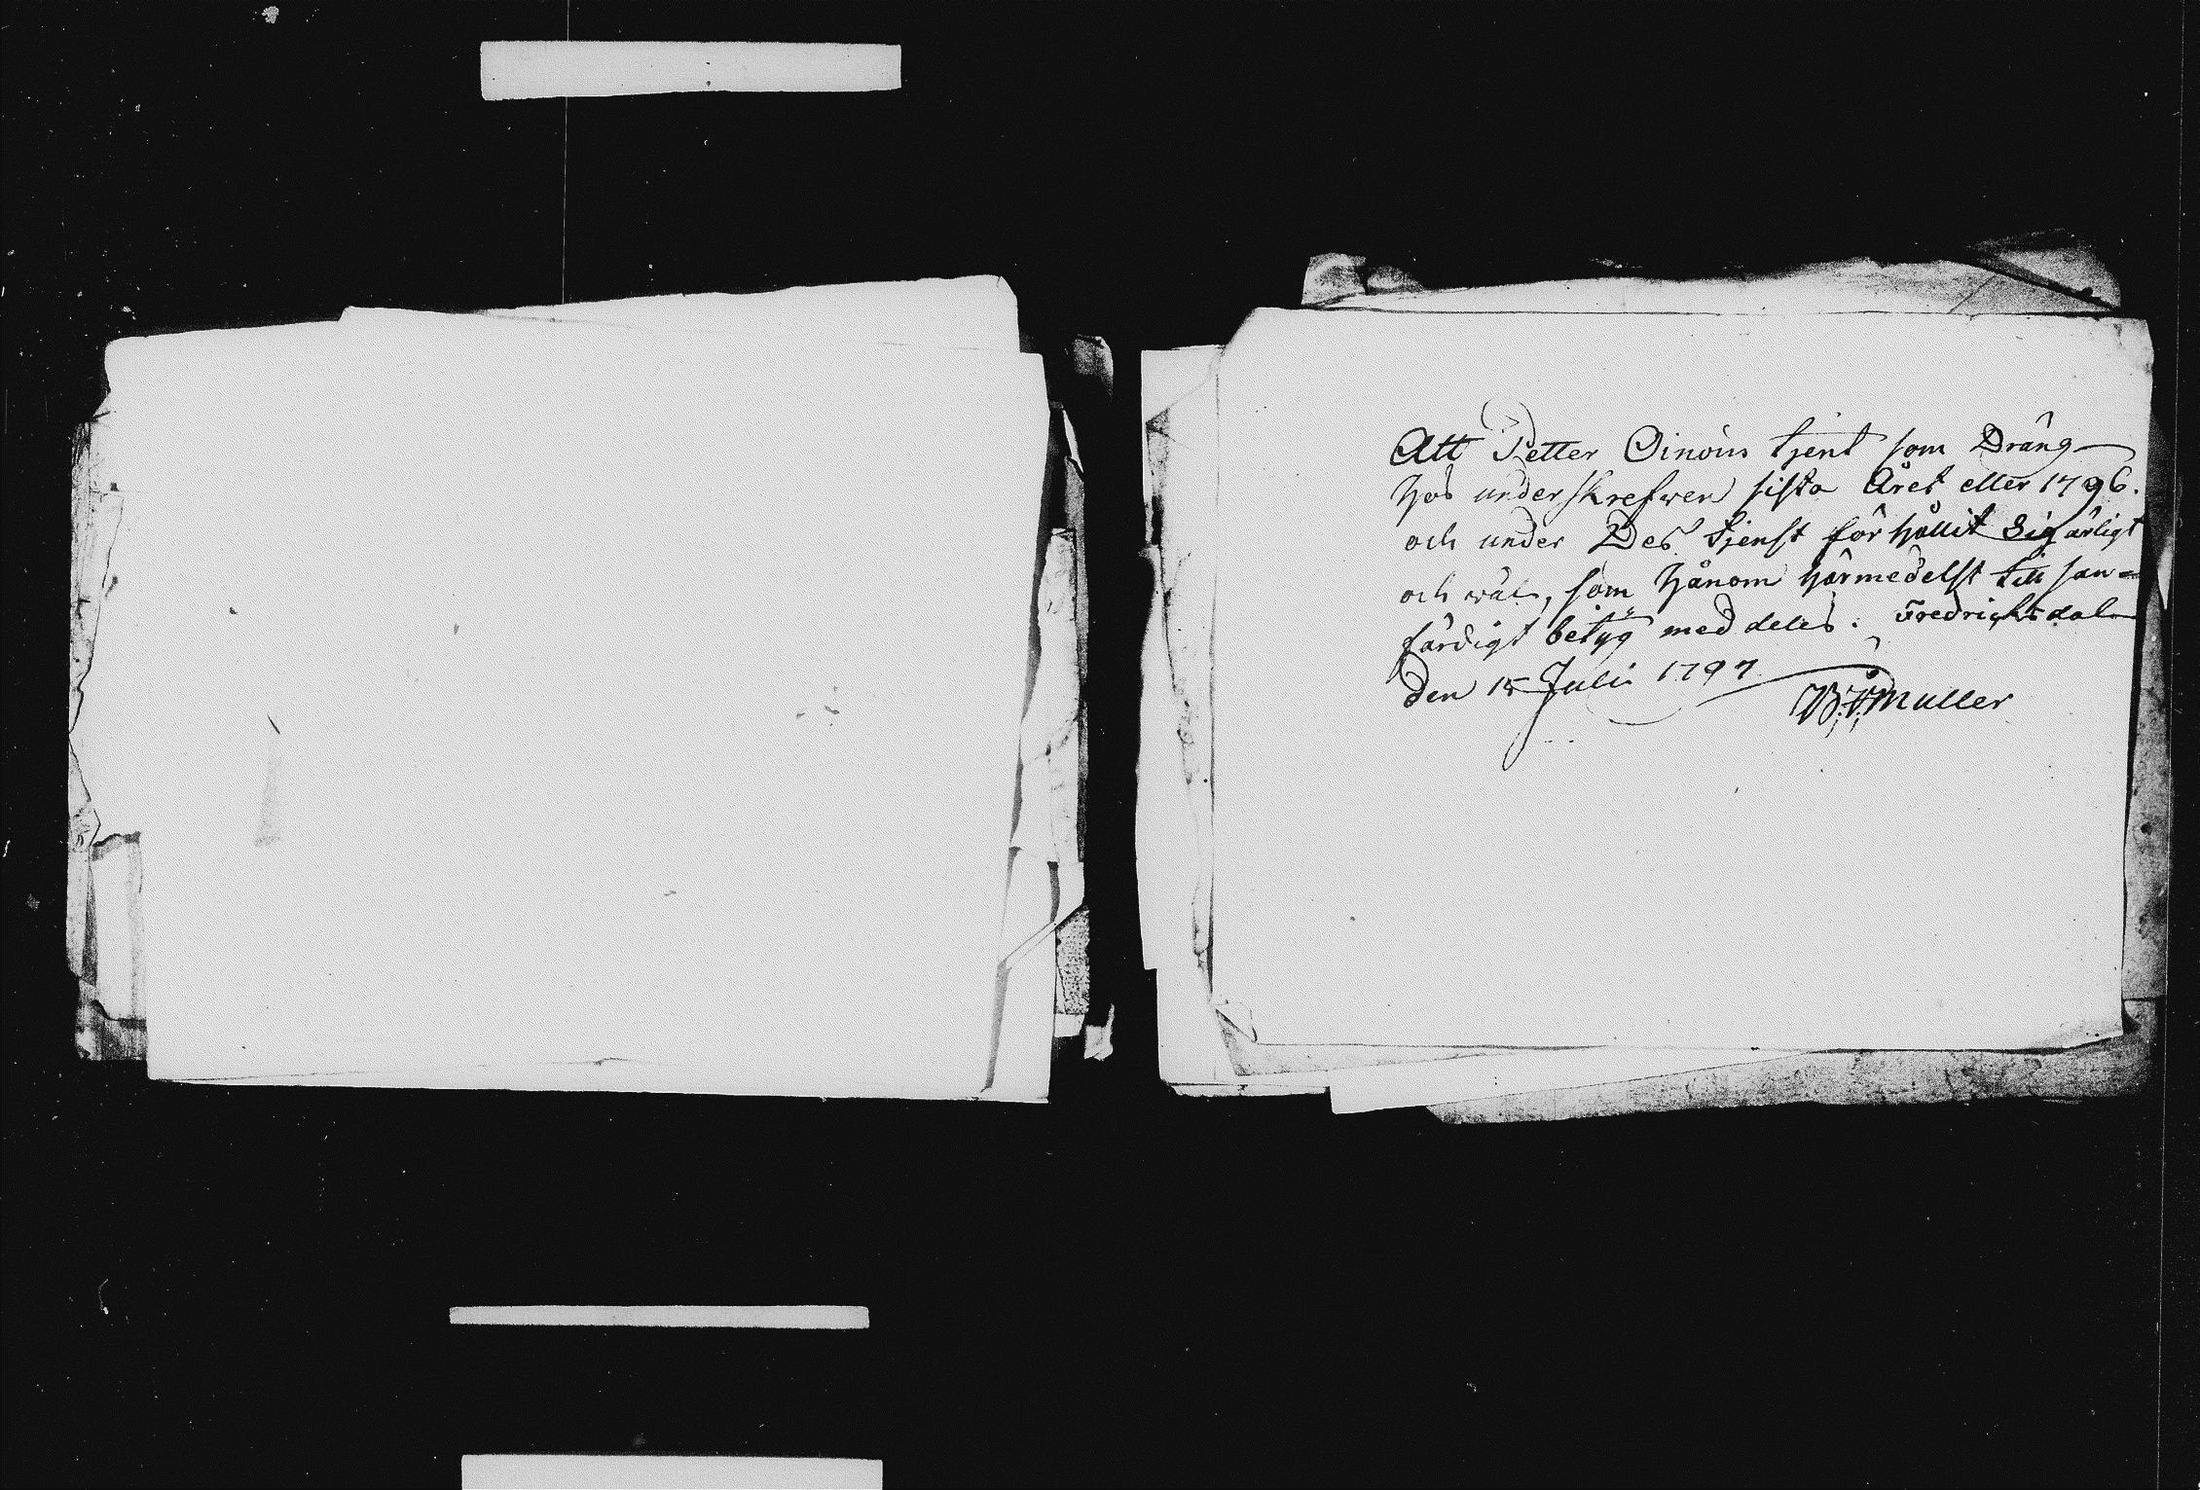 Att Petter Oinoin tjent som Dräng
hos underskrefwen sista Året eller 1796.
och under Des tjenst förhållit Sig ärligt
och wäl, som hånom härmedelst till san=
färdigt betyg meddeles. Fredrichsdal
den 15 Julii 1797.
Muller